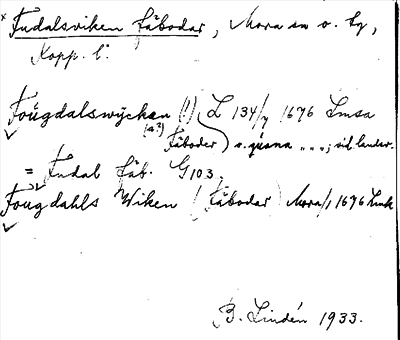 * Fudalsviken fäbodar, Mora sn o. by,
Kopp. l.
Foügdalswÿcken (!) L 134/7 1676 Lmsa
(a?)
Fäboder) s. quona „ „ „; sil. landar.
= Fudal fäb. G103.
Fougdahls Wiken (Fäbodar) Mora/1 1696 Lmk
B. Lindén 1933.